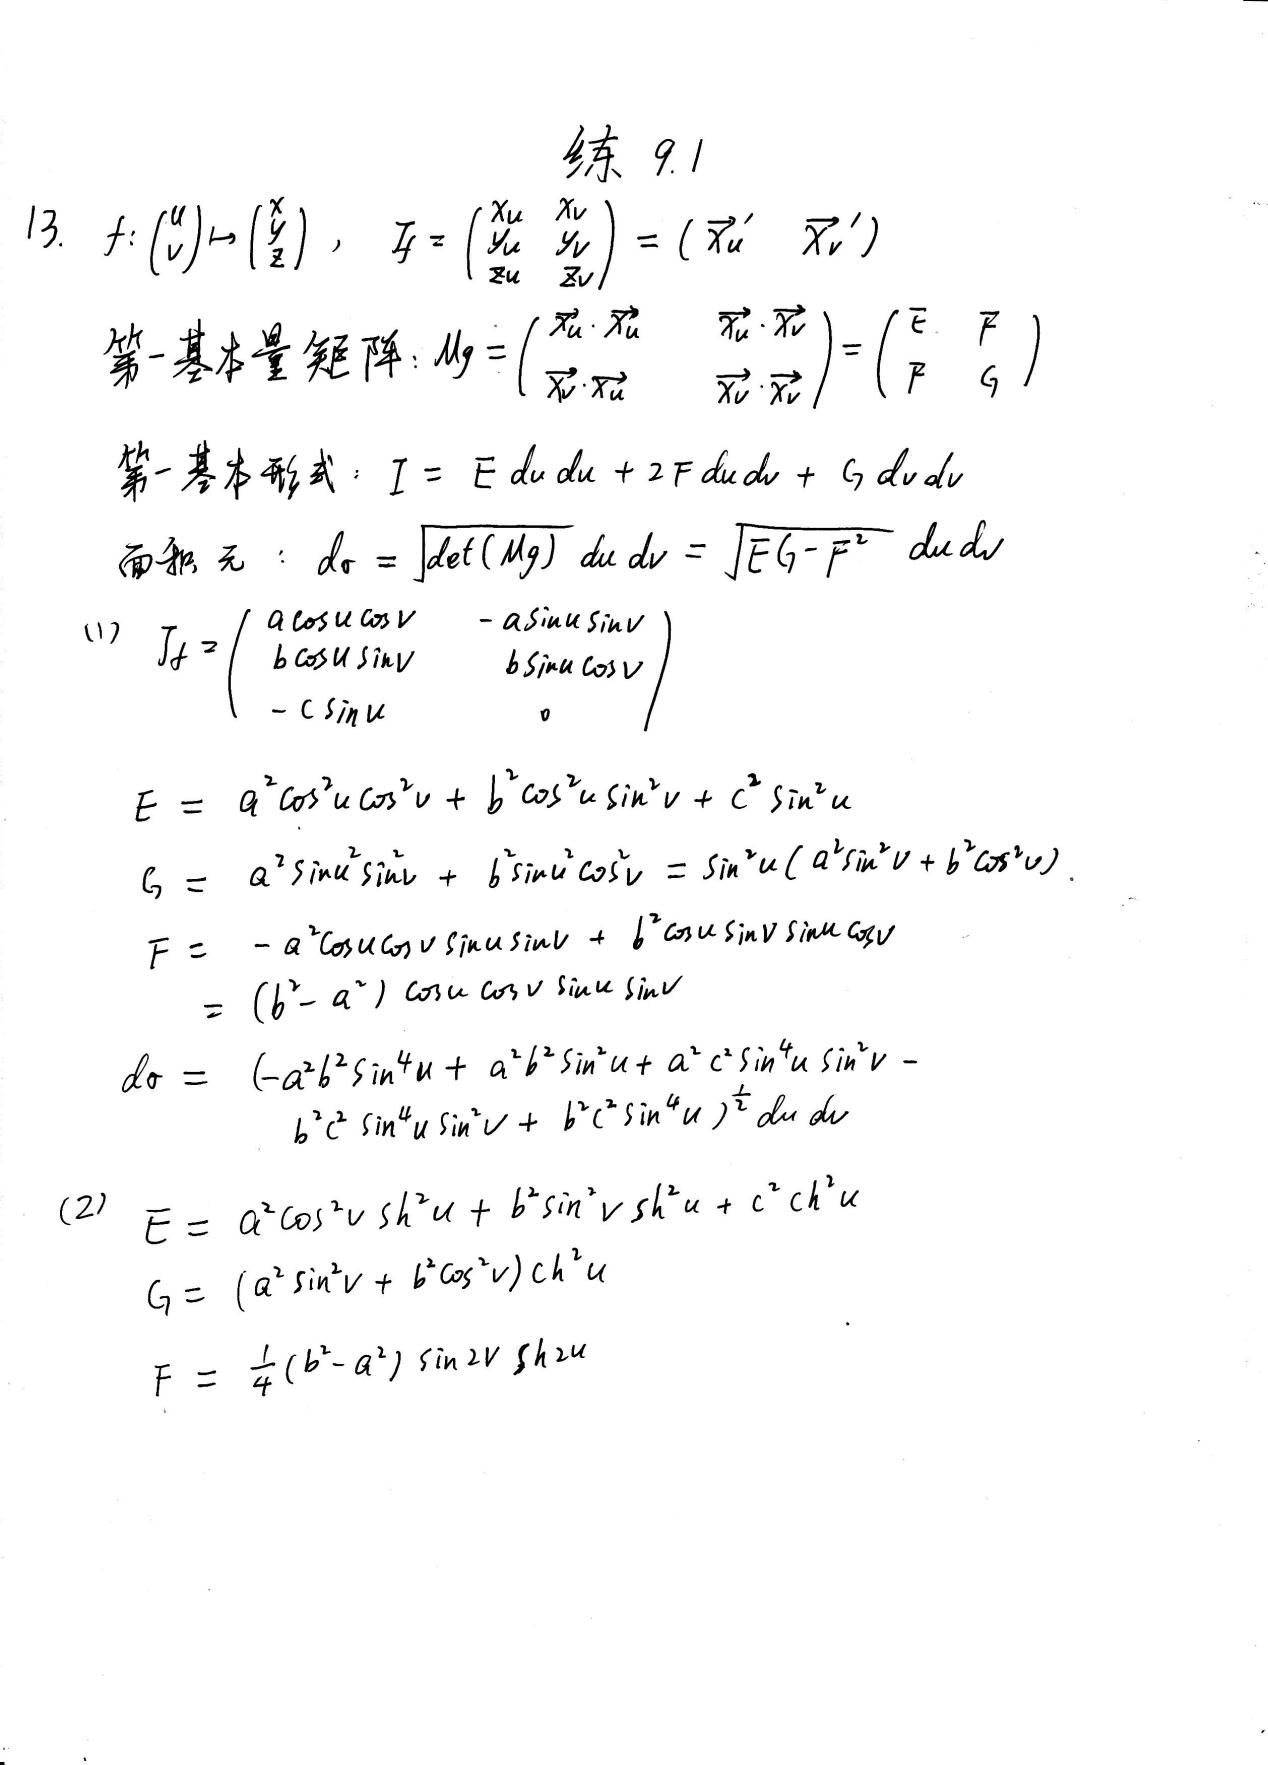 练 9.1
13. f: (u v) ↦ (x y z), J_f = (x_u x_v; y_u y_v; z_u z_v) = (\vec{x}_u' \vec{x}_v')
第一基本量矩阵: Mg = (\vec{x_u}·\vec{x_u} \vec{x_u}·\vec{x_v}; \vec{x_v}·\vec{x_u} \vec{x_v}·\vec{x_v}) = (E F; F G)
第一基本形式: I = E du du + 2F du dv + G dv dv
面积元: dσ = √det(Mg) du dv = √(EG-F²) du dv
(1) J_f = (a cosu cosv -a sinu sinv; b cosu sinv b sinu cosv; -c sinu 0)
E = a²cos²u cos²v + b²cos²u sin²v + c² sin²u
G = a² sinu² sin²v + b² sinu² cos²v = sin²u (a² sin²v + b² cos²v).
F = -a² cosu cosv sinu sinv + b² cosu sinv sinu cosv
= (b²-a²) cosu cosv sinu sinv
dσ = (-a²b² sin⁴u + a²b² sin²u + a²c² sin⁴u sin²v -
b²c² sin⁴u sin²v + b²c² sin⁴u)^{1/2} du dv
(2) E = a²cos²v sh²u + b² sin²v sh²u + c² ch²u
G = (a² sin²v + b² cos²v) ch²u
F = 1/4 (b²-a²) sin2v sh2u